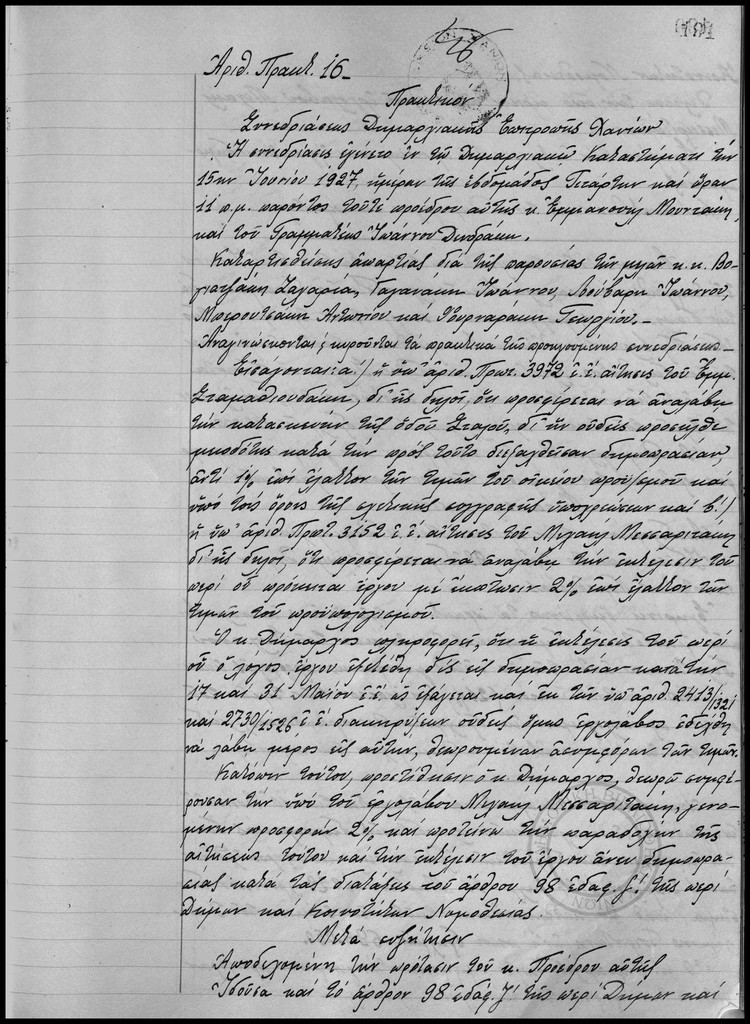 Ἀριθ. Πρακτ. 16-
Πρακτικὸν
Συνεδριάσεως Δημαρχιακῆς Ἐπιτροπῆς Χανίων
Ἡ συνεδρίασις ἐγένετο ἐν τῷ Δημαρχιακῷ Καταστήματι τὴν
15ην Ἰουνίου 1927, ἡμέραν τῆς ἑβδομάδος Τετάρτην καὶ ὥραν
11 π.μ. παρόντος τοῦ τε προέδρου αὐτῆς κ. Ἐμμανουὴλ Μουντάκη,
καὶ τοῦ Γραμματέως Ἰωάννου Δενδράκη.
Καταρτισθείσης ἀπαρτίας διὰ τῆς παρουσίας τῶν μελῶν κ.κ. Βο-
γιατζάκη Ζαχαρία, Γαγανάκη Ἰωάννου, Λούβαρη Ἰωάννου,
Μπερουτσάκη Ἀντωνίου καὶ Φουρναράκη Γεωργίου.-
Ἀναγινώσκονται & κυροῦνται τὰ πρακτικὰ τῆς προηγουμένης συνεδριάσεως-
Εἰσάγονται: α!) ἡ ὑπ' ἀριθ. Πρωτ. 3972 ἐ.ἔ. αἴτησις τοῦ Ἐμμ.
Σταμαθιουδάκη, δι' ἧς δηλοῖ, ὅτι προσφέρεται νὰ ἀναλάβῃ
τὴν κατασκευὴν τῆς ὁδοῦ Σταλοῦ, δι' ἣν οὐδεὶς προσῆλθε
μειοδότης κατὰ τὴν πρὸς τοῦτο διεξαχθεῖσαν δημοπρασίαν,
ἀντὶ 1% ἐπὶ ἔλαττον τῶν τιμῶν τοῦ οἰκείου προϋπ/σμοῦ καὶ
ὑπὸ τοὺς ὅρους τῆς σχετικῆς συγγραφῆς ὑποχρεώσεων καὶ β!)
ἡ ὑπ' ἀριθ. Πρωτ. 3152 ἐ.ἔ. αἴτησις τοῦ Μιχαὴλ Μεσσαριτάκη
δι' ἧς δηλοῖ, ὅτι προσφέρεται νὰ ἀναλάβῃ τὴν ἐκτέλεσιν τοῦ
περὶ οὗ πρόκειται ἔργου μὲ ἔκπτωσιν 2% ἐπὶ ἔλαττον τῶν
τιμῶν τοῦ προϋπολογισμοῦ.
Ὁ κ. Δήμαρχος πληροφορεῖ, ὅτι ἡ ἐκτέλεσις τοῦ περὶ
οὗ ὁ λόγος ἔργου ἐξετέθη δὶς εἰς δημοπρασίαν κατὰ τὴν
17 καὶ 31 Μαΐου ἐ.ἔ. ὡς ἐξάγεται καὶ ἐκ τῶν ὑπ' ἀριθ. 2413/1321
καὶ 2730/1526 ἐ.ἔ. διακηρύξεων οὐδεὶς ὅμως ἐργολάβος ἐδέχθη
νὰ λάβῃ μέρος εἰς αὐτήν, θεωρουμένων ἀσυμφόρων τῶν τιμῶν.
Κατόπιν τούτου, προσετίθησιν ὁ κ. Δήμαρχος, θεωρῶ συμφέ-
ρουσαν τὴν ὑπὸ τοῦ ἐργολάβου Μιχαὴλ Μεσσαριτάκη, γενο-
μένην προσφορὰν 2% καὶ προτείνω τὴν παραδοχὴν τῆς
αἰτήσεως τούτου καὶ τὴν ἐκτέλεσιν τοῦ ἔργου ἄνευ δημοπρα-
σίας κατὰ τὰς διατάξεις τοῦ ἄρθρου 98 ἐδαφ. ζ! τῆς περὶ
Δήμων καὶ Κοινοτήτων Νομοθεσίας.
Μετὰ συζήτησιν
Ἀποδεχομένη τὴν πρότασιν τοῦ κ. Προέδρου αὐτῆς
Ἰδοῦσα καὶ τὸ ἄρθρον 98 ἐδάφ. ζ! τῆς περὶ Δήμων καὶ